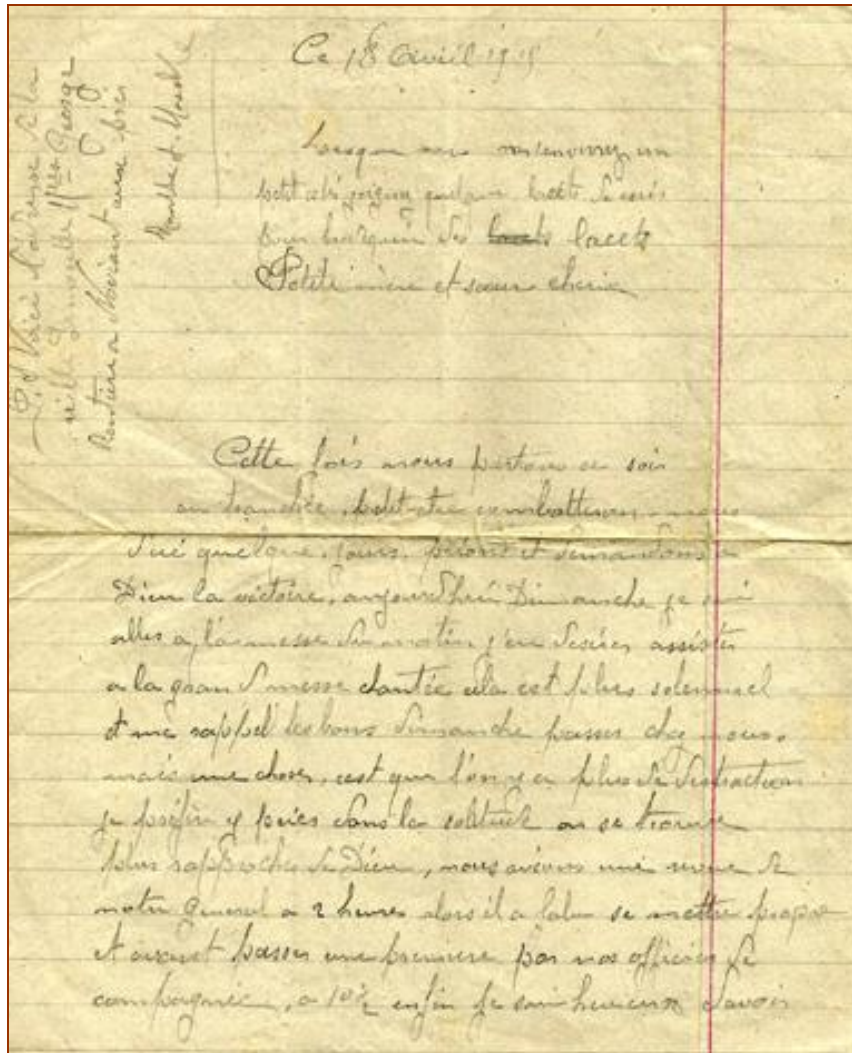 Ce 18 Avril 1915
Lorsque vous m'enverrez un
petit colis joignez quelque lacets de cuir
pour brodequin des lacets
Petite mère et sœur cherie
Cette fois nous partons ce soir
au tranchée, petit etre combatterons-nous
d'ici quelque jours, prions et demandons a
Dieu la victoire, aujourd'hui Dimanche je sui
alles a la messe du matin j'eu desirer assister
a la grand messe chantée cela est plus solennel
et me rappel les bons dimanche passer chez nous.
mais une chose, cest que l'on y a plus de distraction
je préfère y prier dans la solitude on se trouve
plus rapproches de Dieu, nous avions une revue de
notre General a 2 heures alors il a falu se mettre propre
et avant passer une premiere par nos officiers de
compagnie, a 10½ enfin je suis heureux davoir
l'adresse
Moselle